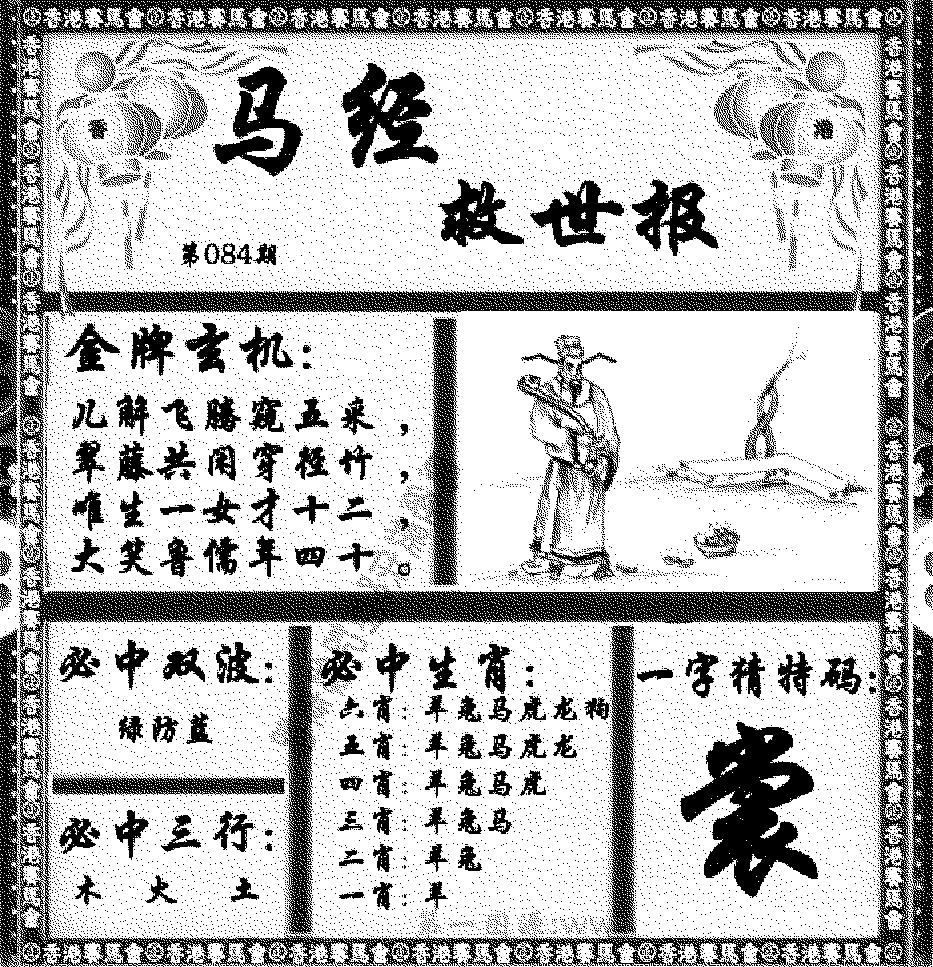 香港赛馬會 香港赛馬會 香港赛馬會 香港赛馬會 香港赛馬會 香港赛馬會 香港赛馬會
香
港
马经
救世报
第084期
金牌玄机:
儿解飞腾窥五采,
翠藤共闭穿径竹,
唯生一女才十二,
大笑鲁儒年四十。
必中双波:
绿防蓝
必中三行:
木 火 土
必中生肖:
六肖: 羊兔马虎龙狗
五肖: 羊兔马虎龙
四肖: 羊兔马虎
三肖: 羊兔马
二肖: 羊兔
一肖: 羊
一字精特码:
裳
香港赛馬會 香港赛馬會 香港赛馬會 香港赛馬會 香港赛馬會 香港赛馬會 香港赛馬會